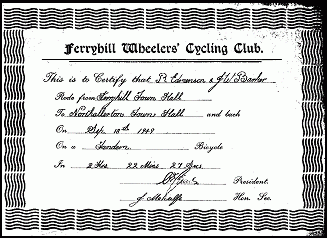 Ferryhill Wheelers' Cycling Club.
This is to Certify that R. Stevenson & J W Barker
Rode from Ferryhill Town Hall
To Northallerton Town Hall and back
On Sep. 18th 1949
On a Tandem Bicycle
In 2 Hrs 22 Mins 27 Secs
President.
J Metcalfe Hon. Sec.